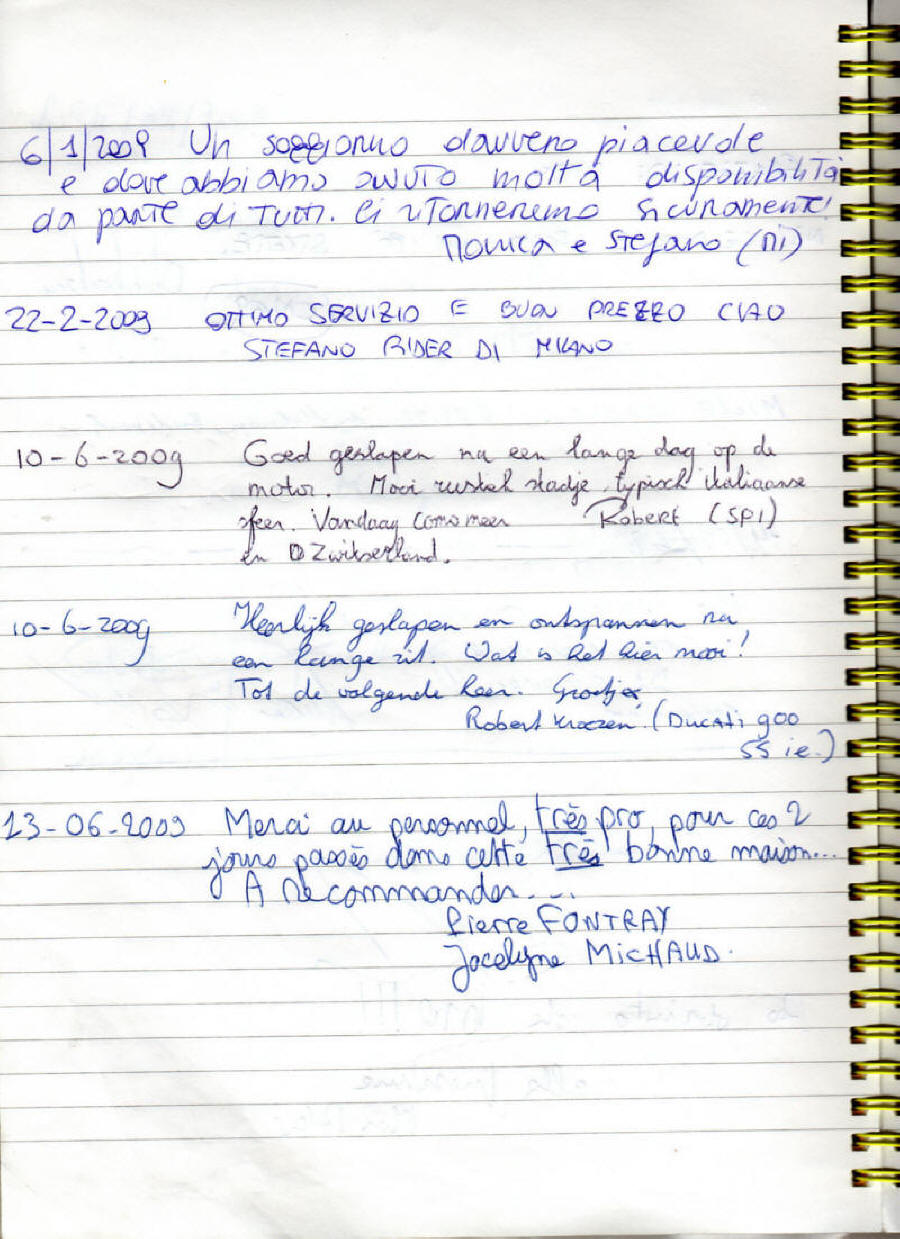 6/1/2009 Un soggiorno davvero piacevole
e dove abbiamo avuto molta disponibilità
da parte di tutti. Ci ritorneremo sicuramente!
Monica e Stefano (MI)
22-2-2009 OTTIMO SERVIZIO E BUON PREZZO CIAO
STEFANO RIDER DI MILANO
10-6-2009 Goed geslapen na een lange dag op de
motor. Mooi rustiek stadje, typisch italiaanse
sfeer. Vandaag Comomeer Robert (SP1)
en Zwitserland.
10-6-2009 Heerlijk geslapen en ontspannen na
een lange zit. Wat is het hier mooi!
Tot de volgende keer. Groetjes
Robert (Ducati 900
SS ie.)
13-06-2009 Merci au personnel, très pro, pour ces 2
jours passés dans cette très bonne maison...
A recommander....
Pierre FONTRAY
Jocelyne MICHAUD.